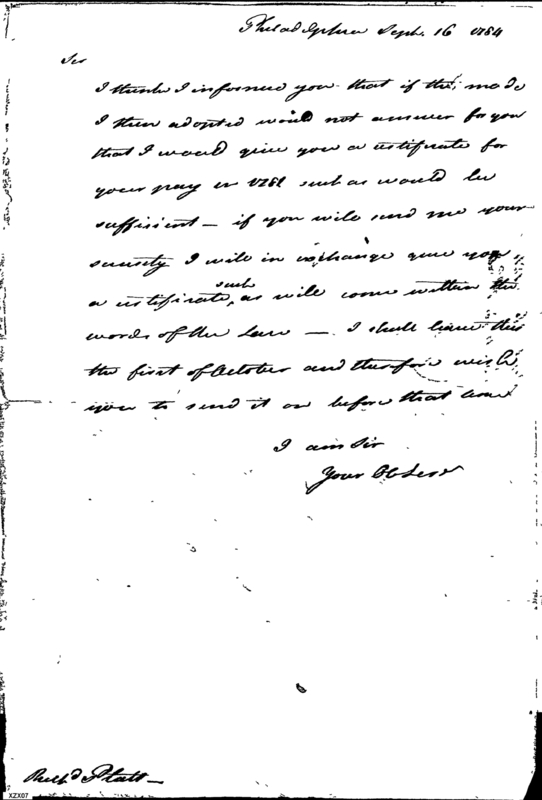 Philadelphia Sept. 16 1784
Sir
I think I informed you that if the mode
I then adopted would not answer for you
that I would give you a certificate for
your pay in 1781 such as would be
sufficient — if you will send me your
security I will in exchange give you
such
a certificate, as will come within the
words of the law — I shall leave this
the first of October and therefore wish
you to send it on before that time
I am Sir
Your Ob Serv
Rich'd Platt —
XZX07